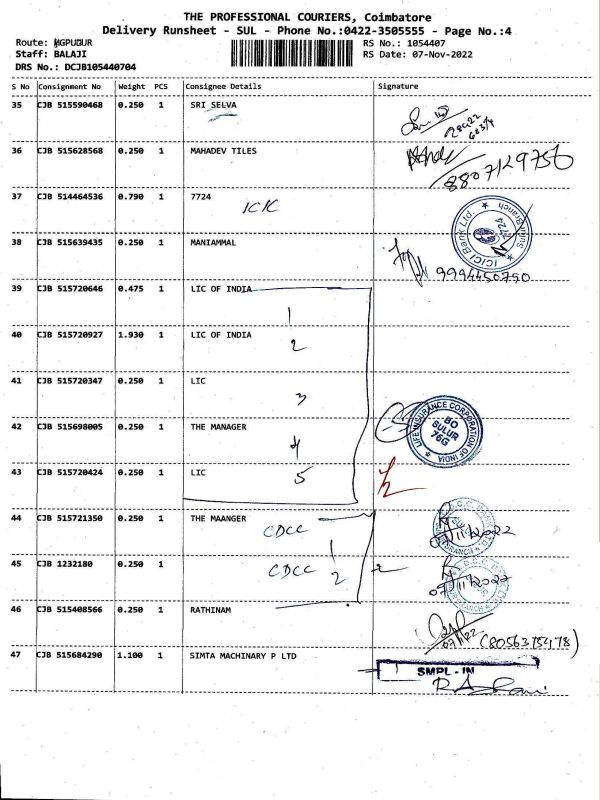 THE PROFESSIONAL COURIERS, Coimbatore
Delivery Runsheet - SUL - Phone No.:0422-3505555 - Page No.:4
Route: NGPUDUR
RS No.: 1054407
Staff: BALAJI
RS Date: 07-Nov-2022
DRS No.: DCJB105440704
S No Consignment No Weight PCS Consignee Details Signature
35 CJB 515590468 0.250 1 SRI SELVA
36 CJB 515628568 0.250 1 MAHADEV TILES
8807129756
37 CJB 514464536 0.790 1 7724
ICIC
ICICI Bank Ltd. 7724
38 CJB 515639435 0.250 1 MANIAMMAL
9994450750
39 CJB 515720646 0.475 1 LIC OF INDIA
1
40 CJB 515720927 1.930 1 LIC OF INDIA
2
41 CJB 515720347 0.250 1 LIC
3
42 CJB 515698005 0.250 1 THE MANAGER
4
LIFE INSURANCE CORPORATION OF INDIA
BO
SULUR
76G
43 CJB 515720424 0.250 1 LIC
5
44 CJB 515721350 0.250 1 THE MAANGER
CDCC 1
07/11/2022
45 CJB 1232180 0.250 1
CDCC 2
07/11/2022
46 CJB 515408566 0.250 1 RATHINAM
07/11/22 (8056375478)
47 CJB 515684290 1.100 1 SIMTA MACHINARY P LTD
SMPL - IN